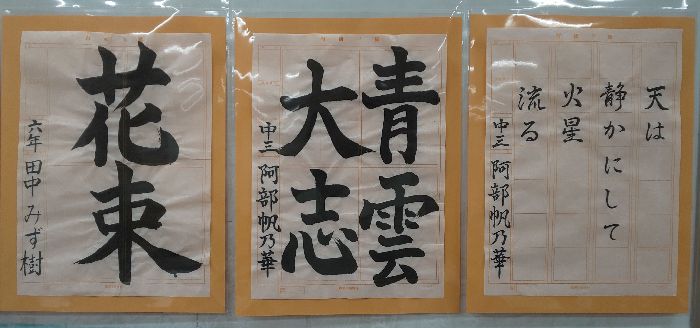 花束
六年 田中 みず樹
青雲
大志
中三 阿部帆乃華
天は
静かにして
火星
流る
中三 阿部帆乃華